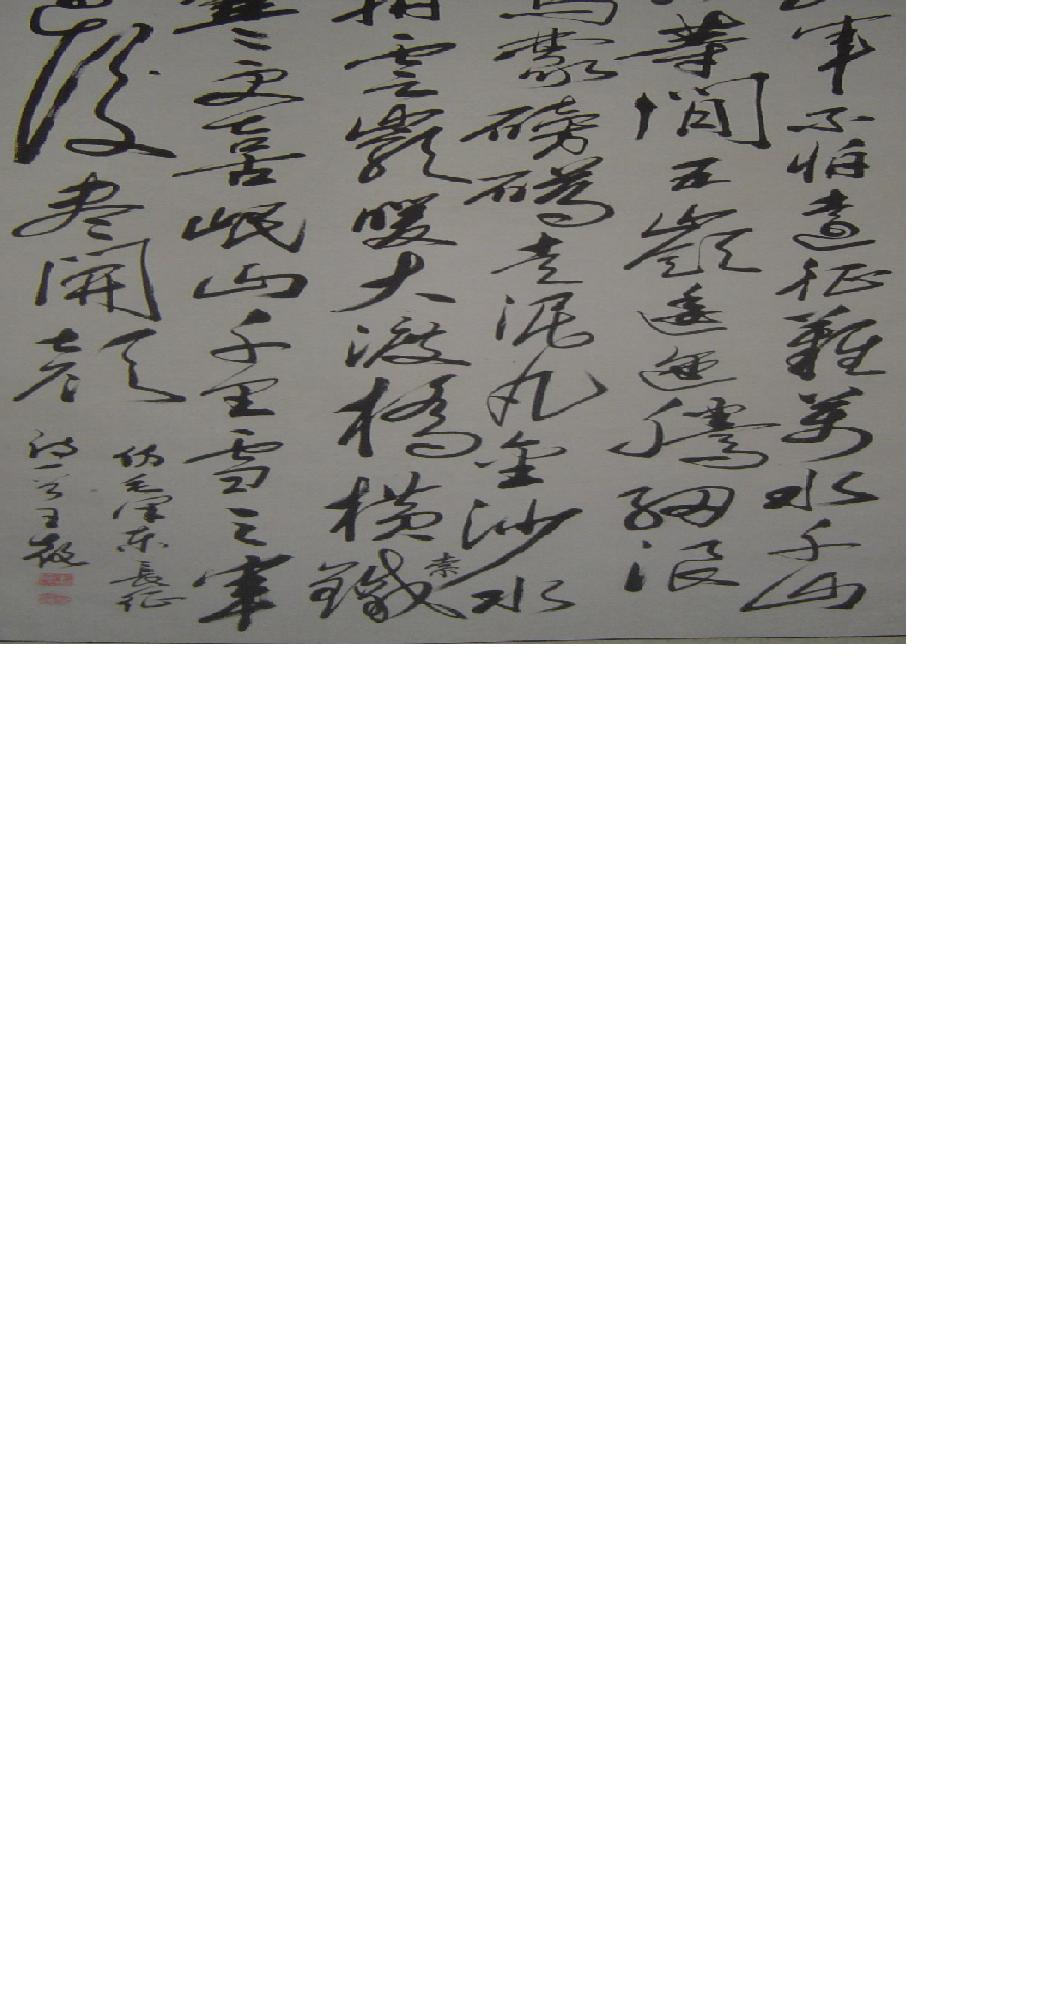 軍不怕遠征難萬水千山
等閒五嶺逶迤騰細浪
烏蒙磅礴走泥丸金沙水
拍雲巖暖大渡橋橫鐵索
寒更喜岷山千里雪三軍
過後盡開顏
毛澤東長征
詩一首王